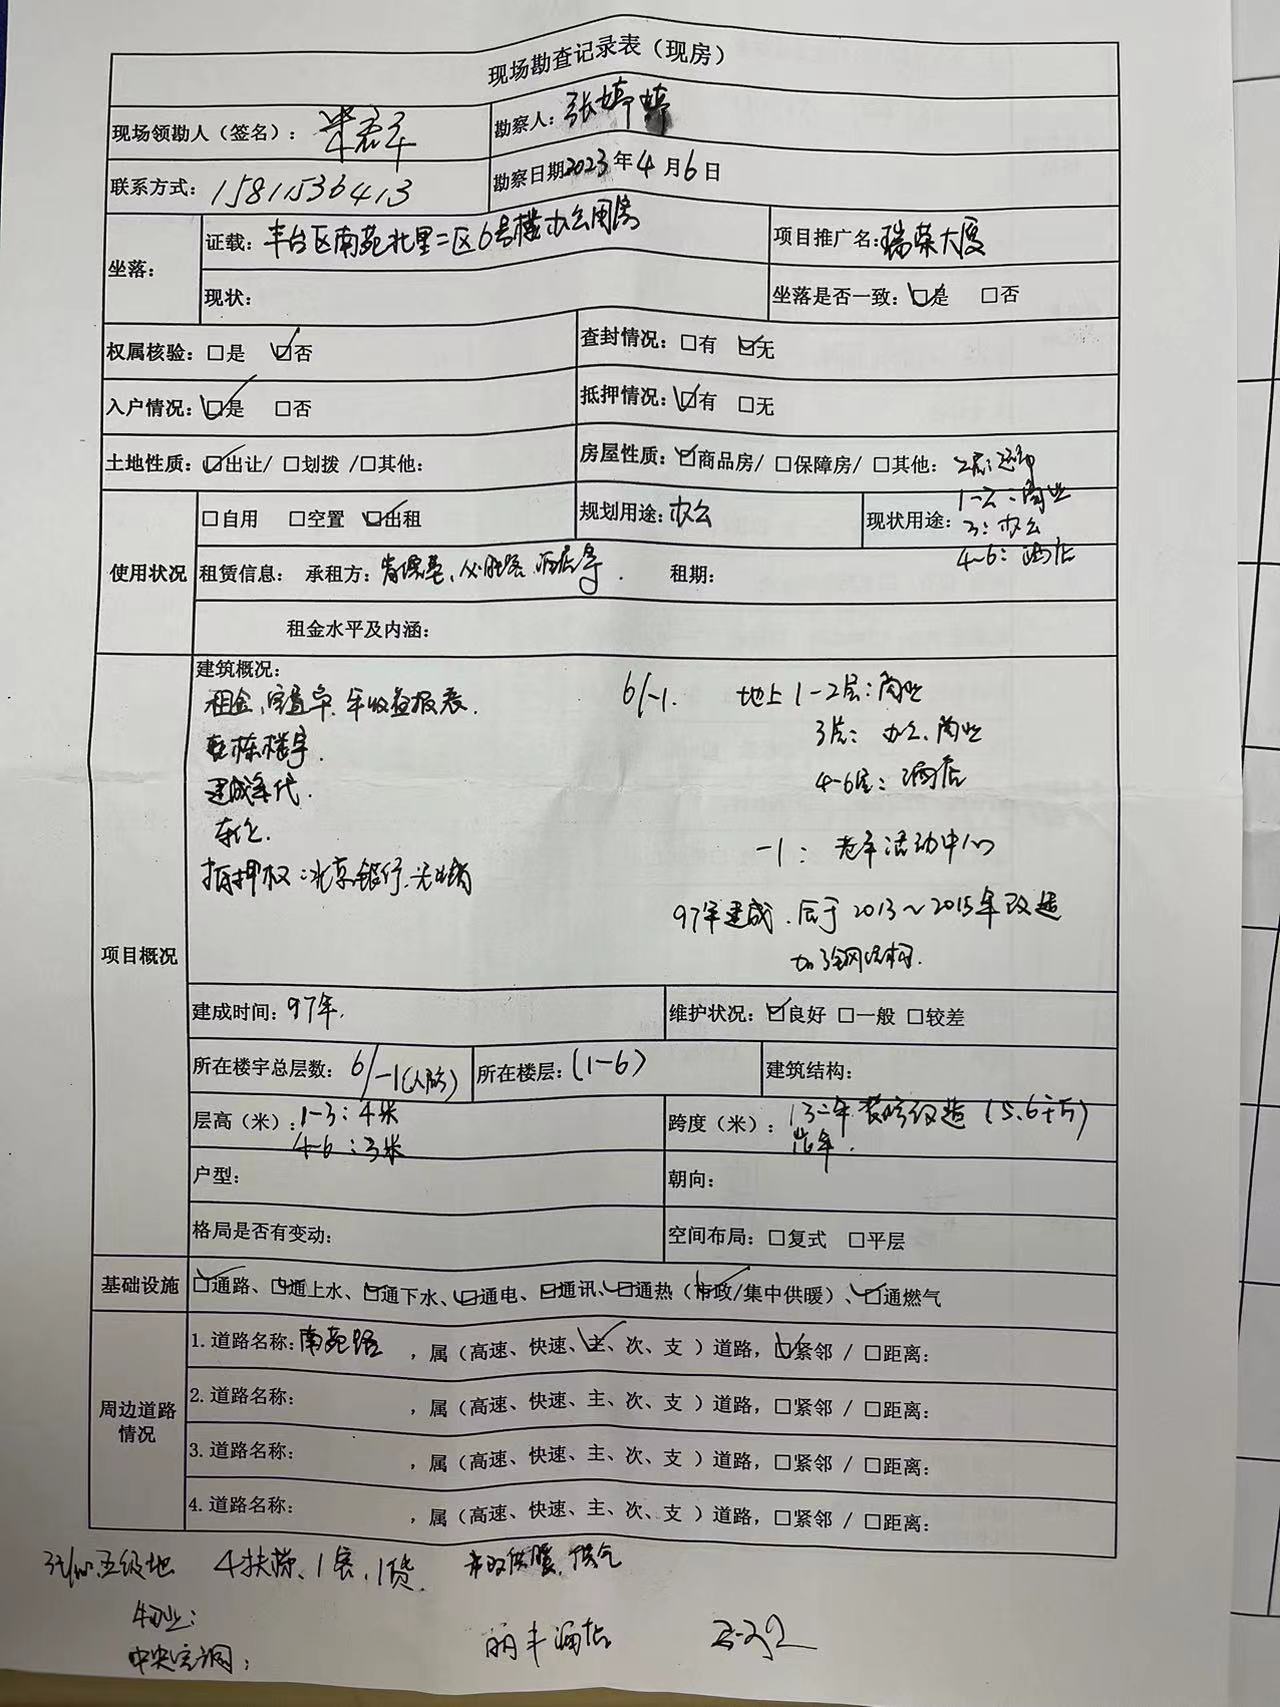 现场勘查记录表（现房）
现场领勘人（签名）：
勘察人：张婷婷
联系方式：15811536413
勘察日期2023年4月6日
坐落：
证载：丰台区南苑北里二区6号楼办公用房
项目推广名：瑞荣大厦
现状：
坐落是否一致：☑是 □否
权属核验：□是 ☑否
查封情况：□有 ☑无
入户情况：☑是 □否
抵押情况：☑有 □无
土地性质：☑出让/ □划拨 /□其他：
房屋性质：☑商品房/ □保障房/ □其他：
使用状况
□自用 □空置 ☑出租
规划用途：办公
现状用途：
1-2：商业
3：办公
4-6：酒店
租赁信息： 承租方：肯德基、必胜客、酒店等. 租期：
租金水平及内涵：
项目概况
建筑概况：
租金、空置率、年收益报表.
整栋楼宇.
建成年代.
车位.
抵押权：北京银行.
6/-1. 地上1-2层：商业
3层：办公、商业
4-6层：酒店
-1：老年活动中心
97年建成.后于2013~2015年改造
加钢结构.
建成时间：97年.
维护状况：☑良好 □一般 □较差
所在楼宇总层数：6/-1(人防)
所在楼层：(1-6)
建筑结构：
层高（米）：1-3：4米
4-6：3米
跨度（米）：13年装修改造（5.6千万）
户型：
朝向：
格局是否有变动：
空间布局：□复式 □平层
基础设施
☑通路、☑通上水、☑通下水、☑通电、☑通讯、☑通热（市政/集中供暖）、☑通燃气
周边道路情况
1. 道路名称：南苑路 ，属（高速、快速、主、次、支 ）道路，☑紧邻 / □距离：
2. 道路名称： ，属（高速、快速、主、次、支 ）道路，□紧邻 / □距离：
3. 道路名称： ，属（高速、快速、主、次、支 ）道路，□紧邻 / □距离：
4. 道路名称： ，属（高速、快速、主、次、支 ）道路，□紧邻 / □距离：
五级地 4扶梯、1客、1货. 市政供暖、供气
物业：
中央空调：
丽丰酒店